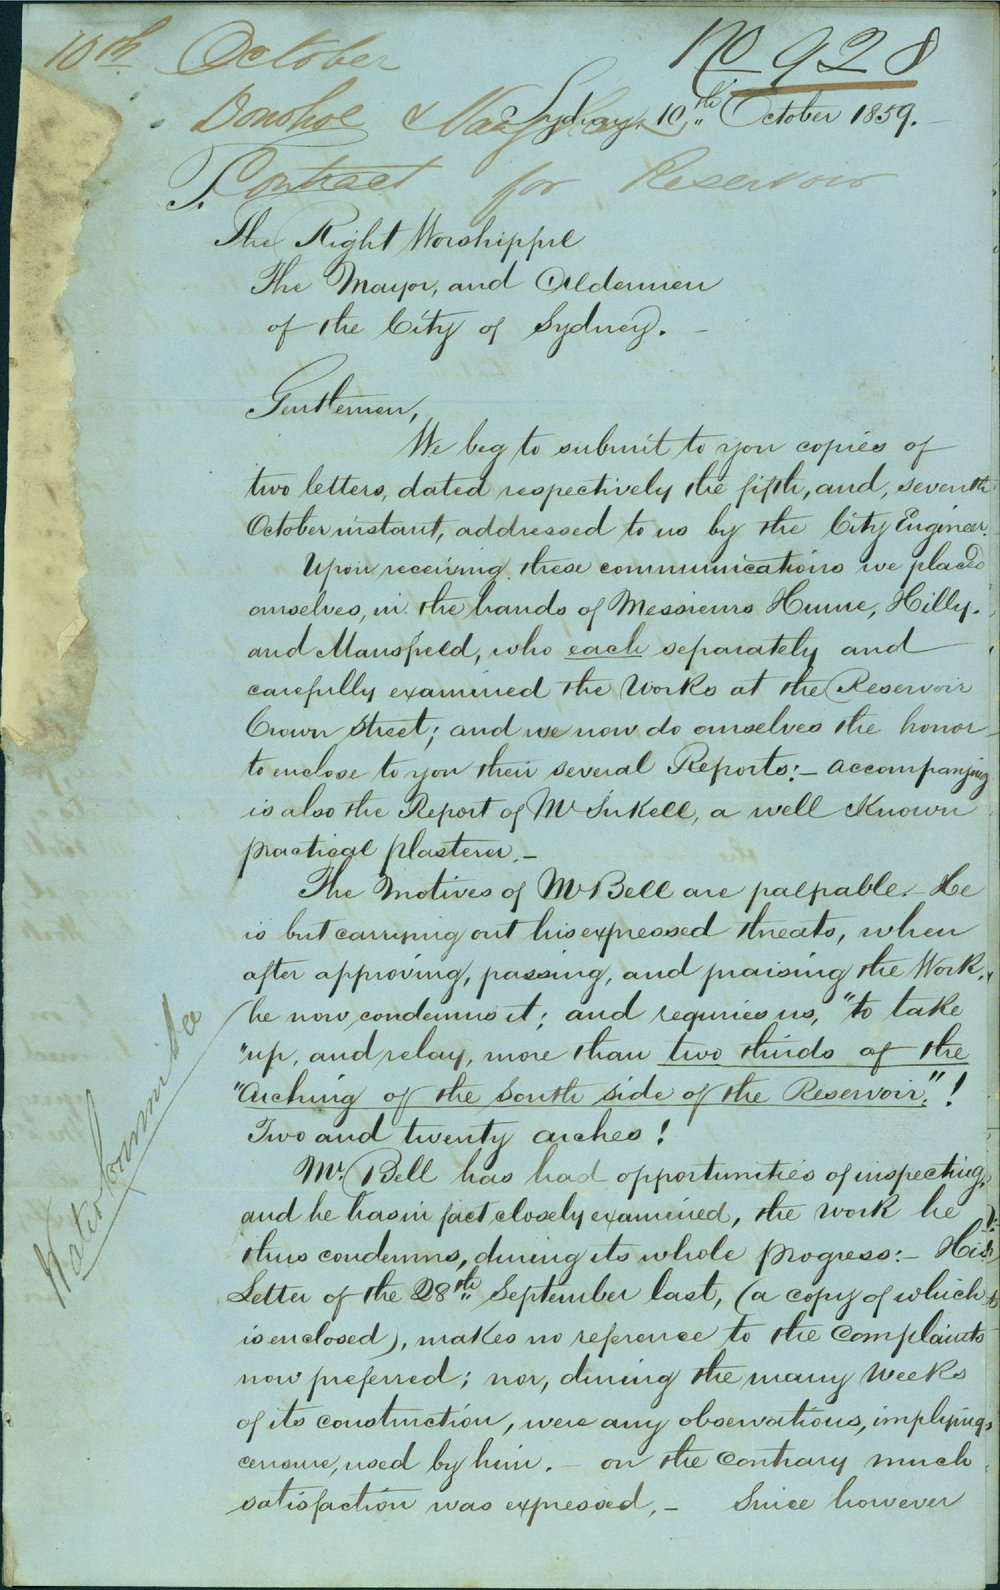 No 928
10th October
Donohoe & Vaughan
Sydney, 10th October 1859.
Contract for Reservoir
To
The Right Worshipful
The Mayor, and Aldermen
of the City of Sydney. –
Gentlemen,
We beg to submit to you copies of
two letters, dated respectively the fifth, and, seventh
October instant, addressed to us by the City Engineer.
Upon receiving these communications we placed
ourselves, in the hands of Messieurs Hume, Hilly.
and Mansfield, who each separately and
carefully examined the Works at the Reservoir
Crown Street; and we now do ourselves the honor
to enclose to you their several Reports:– accompanying
is also the Report of Mr Inkell, a well Known
practical plasterer. –
The Motives of Mr Bell are palpable. – He
is but carrying out his expressed threats, when
after approving, passing, and praising the Work,
he now condemns it; and requires us, "to take
"up, and relay, more than two thirds of the
"Arching of the South side of the Reservoir,"!
Two and twenty arches!
Mr. Bell has had opportunities of inspecting,
and he has in fact closely examined, the work he
thus condemns, during its whole progress:– His
Letter of the 28th September last, (a copy of which
is enclosed), makes no reference to the Complaints
now preferred; nor, during the many Weeks
of its construction, were any observations, implying
censure, used by him. – on the Contrary much
satisfaction was expressed. – Since however
Water Committee